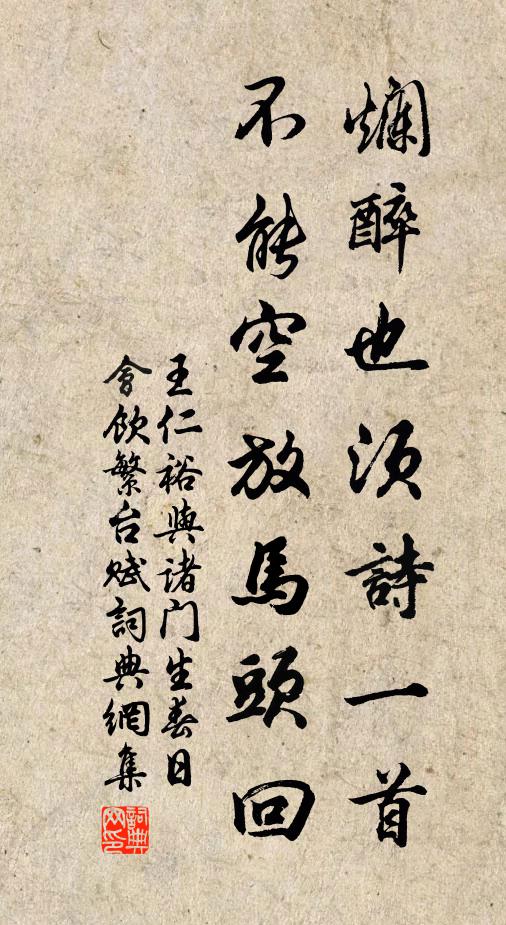 爛醉也須詩一首
不能空放馬頭回
王仁裕與诸门生春日
會飲繁台賦詞典網集
詞典网印